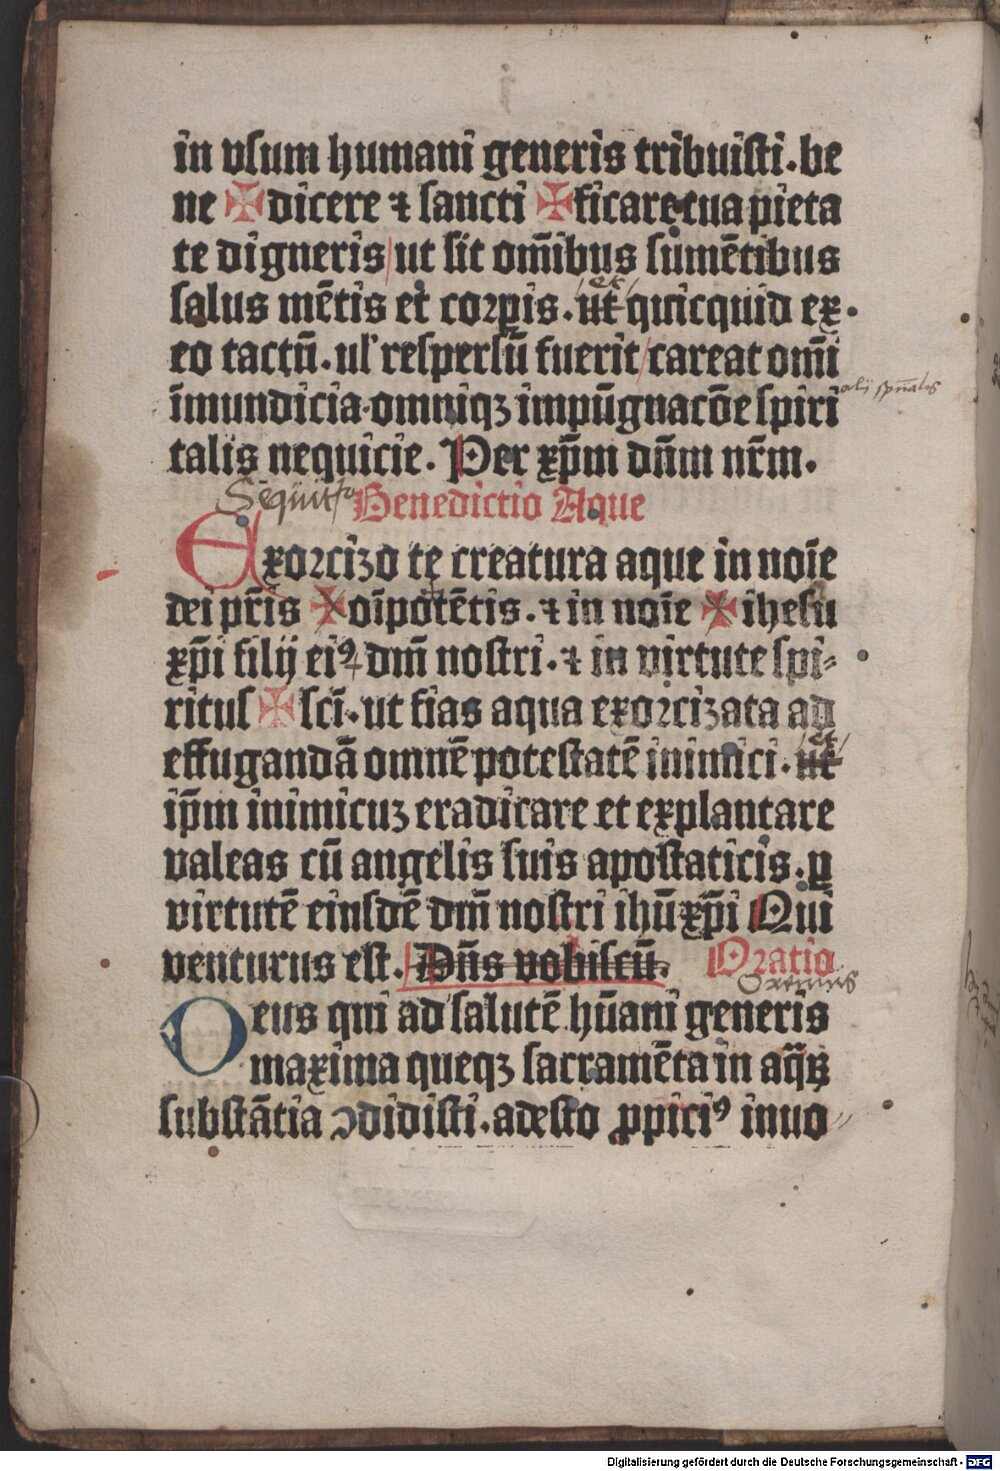 in vsum humani generis tribuisti. be
ne ✠ dicere ⁊ sancti ✠ ficare tua pieta
te digneris / ut sit om̄ibus sumētibus
salus mētis et corꝑis. ut quicquid ex
et
eo tactū. ul' respersū fuerit / careat om̄i
īmundicia. omniqꝫ impūgnacōe spiri
talis nequicie. Per xp̄m dn̄m nr̄m.
Benedictio Aque
Exorcizo te creatura aque in noīe
dei pr̄is ✠ oīpotētis. ⁊ in noīe ✠ ihesu
xp̄i filij eiꝰ dm̄ nostri. ⁊ in virtute spi⸗
ritus ✠ scī. ut fias aqua exorcizata ad
effugandā omnē potestatē inimici. ut
et
ip̄m inimicuꝫ eradicare et explantare
valeas cū angelis suis apostaticis. ꝑ
virtutē eiusdē dm̄ nostri ihū xp̄i Qui
venturus est. Dn̄s vobiscū. Oratio
Oremus
Deus qui ad salutē hūani generis
maxima queqꝫ sacramēta in aq̄ꝝ
substātia ↄdidisti. adesto ꝓpiciꝰ inuo
Digitalisierung gefördert durch die Deutsche Forschungsgemeinschaft - DFG